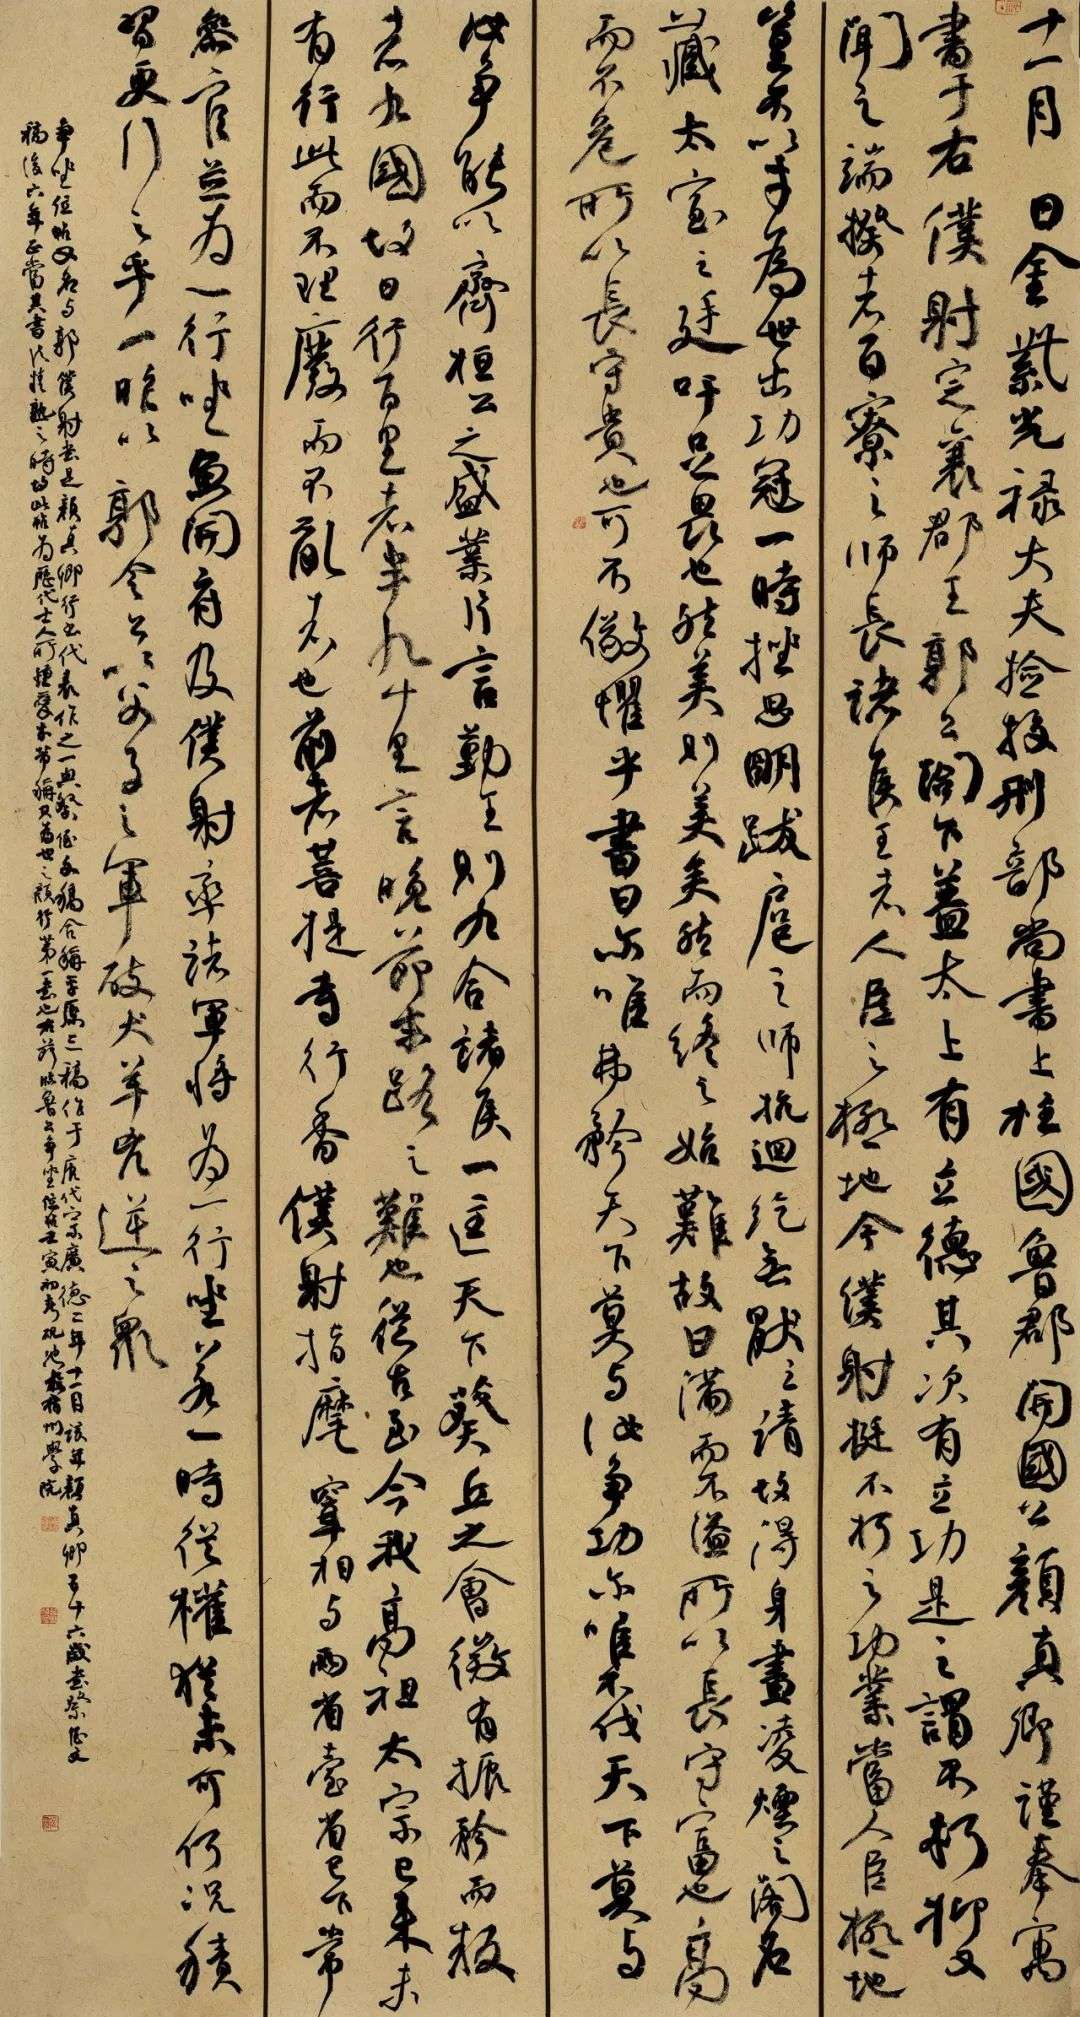 十一月　日金紫光禄大夫检挍刑部尚書上柱國魯郡開國公顏真卿謹奉寓
書于右僕射定襄郡王郭公閤下蓋太上有立德其次有立功是之謂不朽抑又
聞之端揆者百寮之师長諸侯王者人臣之極地今僕射挺不朽之功業當人臣極地
豈不以才為世出功冠一時挫思明跋扈之师抗迴紇無厭之請故得身畫凌煙之閣名
藏太室之廷吁足畏也然美則美矣然而终之始難故曰满而不溢所以長守富也高
而不危所以長守貴也可不儆懼乎書曰尔唯弗矜天下莫与汝争功尔唯不伐天下莫与
汝争能以齊桓公之盛業片言勤王則九合諸侯一匡天下葵丘之會微有振矜而叛
者九國故曰行百里者半九十里言晚節末路之難也從古至今我高祖太宗已来未
有行此而不理廢而不亂者也前者菩提寺行香僕射指麾宰相与兩省臺省已下常
叅官並为一行坐魚開府及僕射率諸軍將为一行坐若一時從權猶未可何况積
習更行之乎一昨以郭令公以父子之軍破犬羊凶逆之眾
争坐位帖又名与郭僕射书是顏真卿行书代表作之一与祭侄文稿合稱 三稿作于唐代宗廣德二年十一月該年顏真卿五十六歲书祭侄文
稿後六年正當其書法 之時故此帖为歷代士人所 之顏行第一 也 臨魯公争坐位 壬寅初 州學院